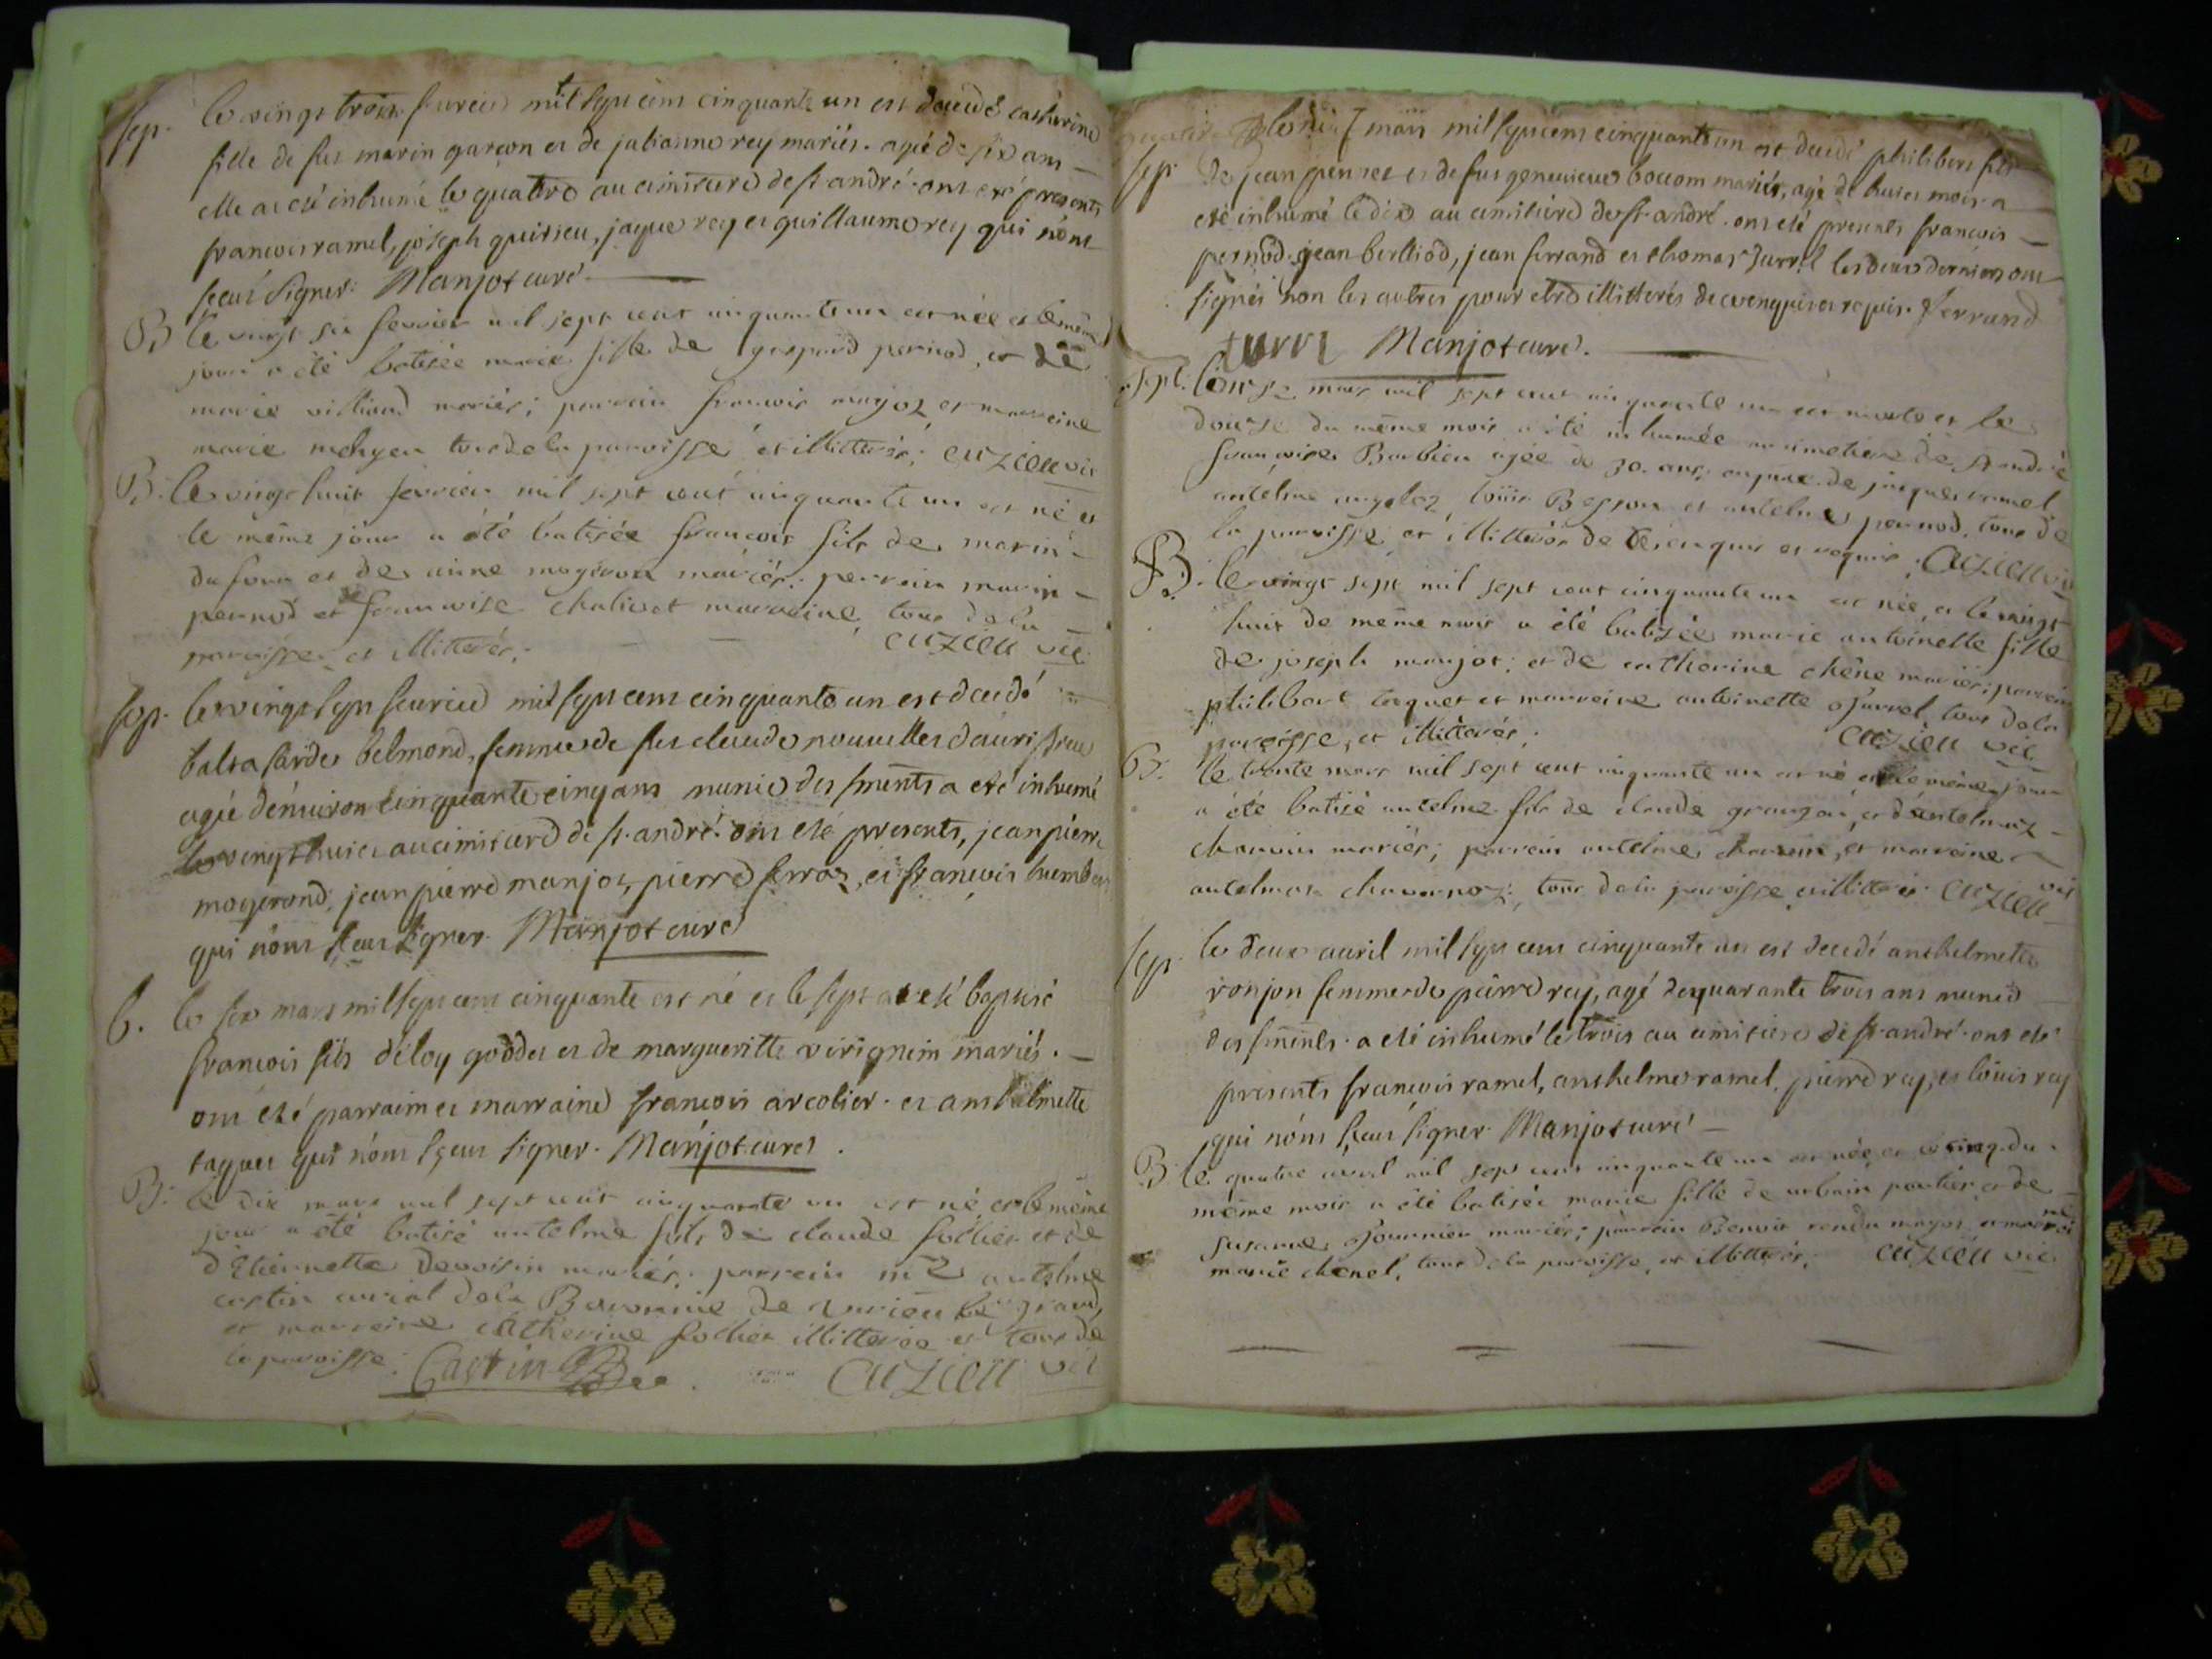 sep. le vingt trois fevrier mil sept cens cinquante un est decedé catherine
fille de feu marin garçon et de julianne rey mariés. agée de six ans —
elle a eté inhumé le quatre au cimitiere de st. andré. ont eté presents
francois ramel, joseph quisseu, jaque rey et guillaume rey qui n'ont
sceu signer. Manjot curé
B le vingt six fevrier mil sept cent cinquante un est née et le même
jour a été batisée marie fille de gaspard pernod, et de
marie villioud mariés; parrain francois manjoz et marreine
marie tous de la paroisse et illitterés; cuzieu vic
B. le vingt huit fevrier mil sept cent cinquante un est né et
le même jour a été batisée francois fils de marin -
dufour et de mariés; parrain marin -
pernod et francoise chalivet marreine, tous de la -
paroisse et illitterés; cuzieu vic
sep. le vingt sept fevrier mil sept cens cinquante un est decedé
baltasarde belmond, femme de feu claude
agée d'environ cinquante cinq ans munie des sments a eté inhumé
le vingt huit au cimitiere de st. andré. ont eté presents, jean pierre
mogerond, jean pierre manjoz, pierre ferroz, et francois humbert
qui n'ont sceu signer. Manjot curé
b. le six mars mil sept cens cinquante est né et le sept a eté baptisé
francois fils d'eloy goddet et de margueritte virignin mariés. —
ont eté parrain et marraine francois arcolier. et anthelmette
taquet qui n'ont sceu signer. Manjot curé.
B. le dix mars mil sept cent cinquante un est né et le même
jour a été batisé antelme fils de claude sollier et de
d'Etiennette Devoisin mariés; parrein mre antelme
castin curial de la Baronnie de virieu le grand,
et marreine catherine sollier illitterée et tous de
la paroisse. Castin cuzieu vic
le 7 mars mil sept cens cinquante un est decedé philibert fils
sep. de jean pernet et de feu genevieve bocom mariés, agé de huit mois a
eté inhumé le dix au cimitiere de st. andré. ont eté presents francois —
pernod, jean berlliod, jean ferrand et thomas Jurrel les deux derniers ont
signés non les autres pour etre illitterés de ce enquis et requis. Ferrand
turrl Manjot curé.
sepl. l'onze mars mil sept cent cinquante un est morte et le
douze du même mois a été inhumée au cimetiere de st andré
francoise Barbier agée de 30. ans; en presence de jacques ramel
antelme louis Besson et antelme pernod, tous de
la paroisse et illitterés de ce enquis et requis. cuzieu vic
B. le vingt sept mil sept cent cinquante un est née, et le vingt
huit de même mois a été batisée marie antoinette fille
de joseph manjot; et de catherine chêne mariés; parrein
philibert taquet et marreine antoinette Jurrel, tous de la
paroisse, et illitterés; cuzieu vic
B. le trente mars mil sept cent cinquante un est né et le même jour
a été batisé antelme fils de claude et d'antelmaz -
chauvin mariés; parrein antelme chauvin, et marreine
antelmaz chavornoz; tous de la paroisse, illitterés. cuzieu vic
sep. le deux avril mil sept cens cinquante un est decedé anthelmette
ronjon femme de pierre rey, agé de quarante trois ans munie
des sments. a eté inhumé le trois au cimitiere de st. andré. ont eté
presents francois ramel, anthelme ramel, pierre rey, et louis rey
qui n'ont sceu signer. Manjot curé —
B le quatre avril mil sept cent cinquante un est née, et le cinq du
même mois a été batisée marie fille de urbain et de
susanne fournier mariés; parrein Benoit et marreine
marie chenel, tous de la paroisse, et illitterés; cuzieu vic